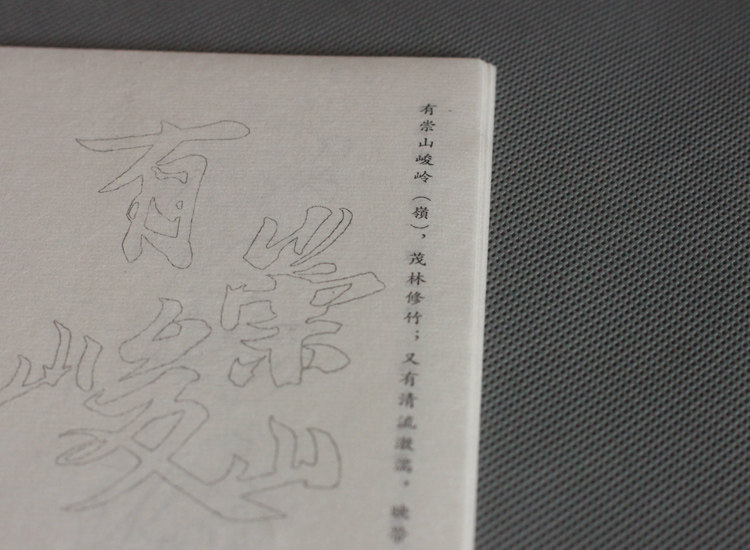 有崇山峻岭（嶺），茂林修竹；又有清流激湍，映带
有崇山峻